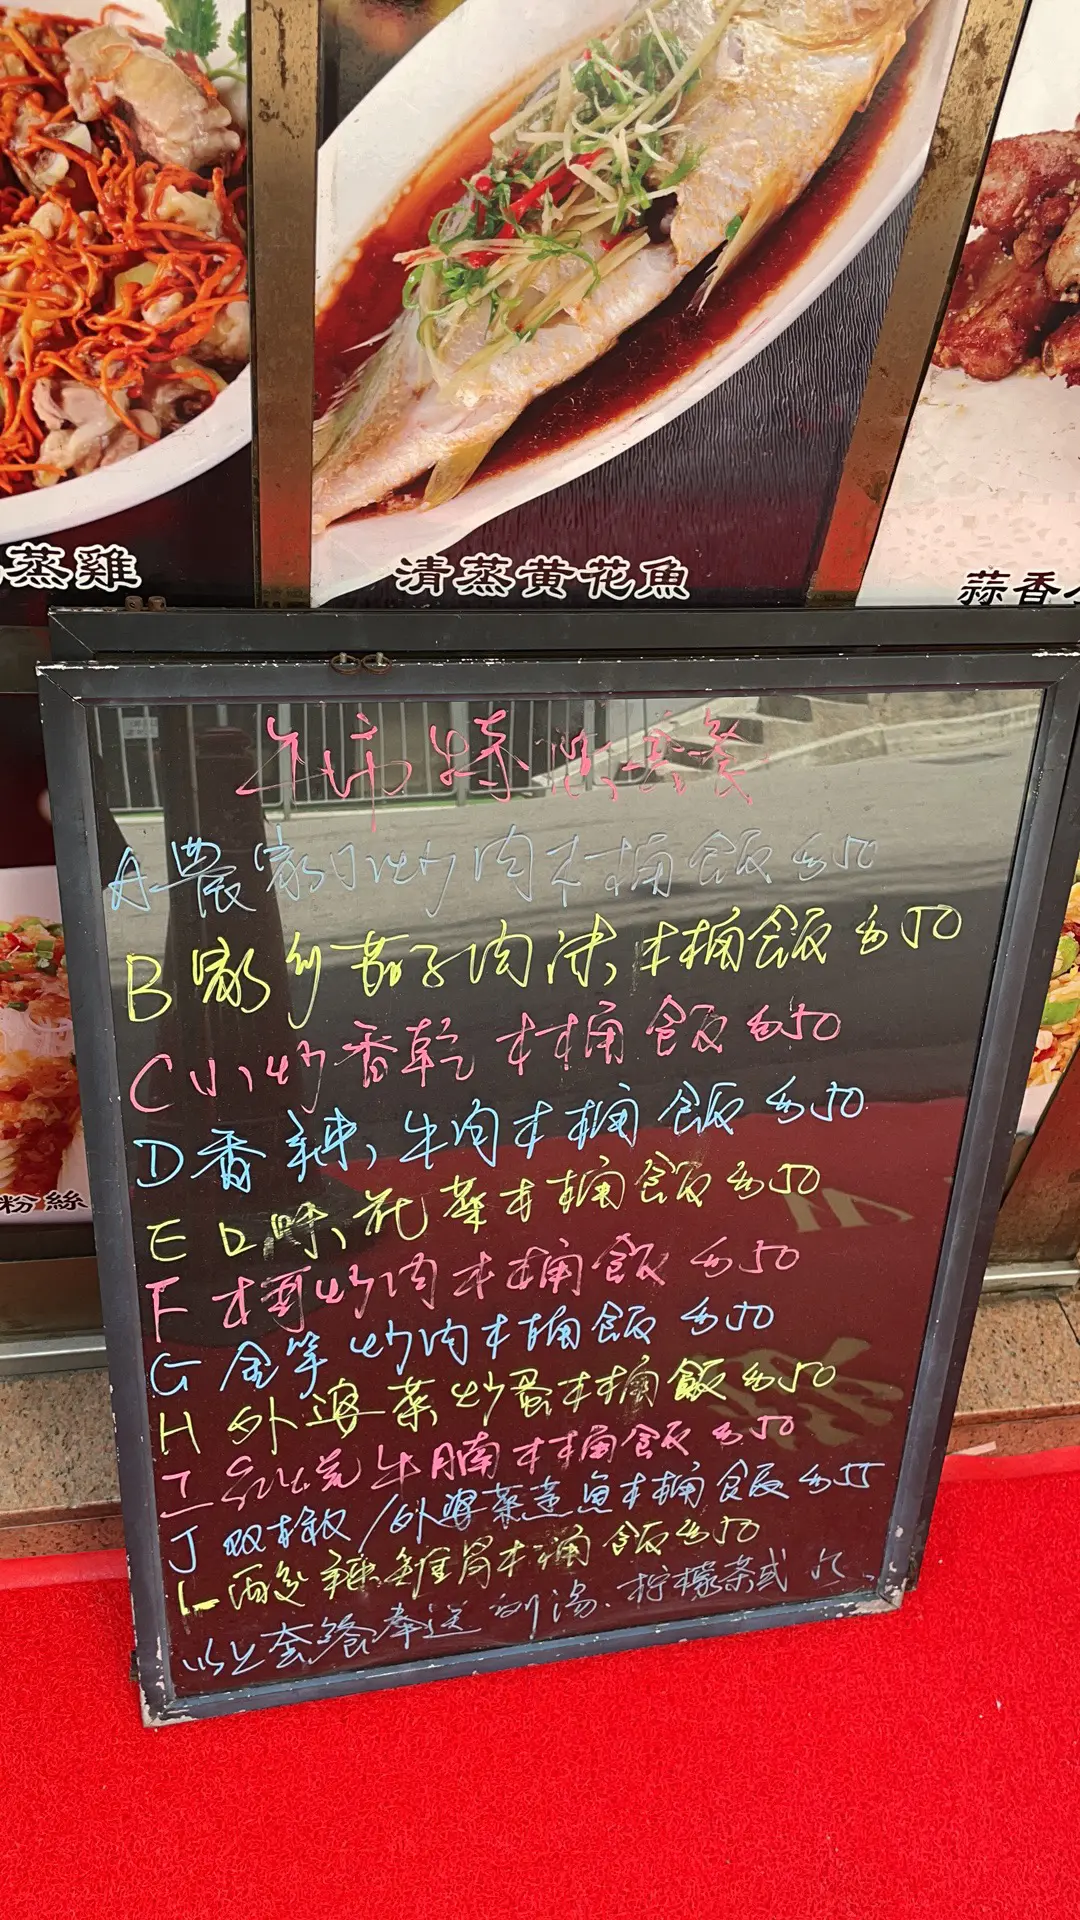 蒸雞
清蒸黄花魚
蒜香
粉絲
午市特惠套餐
A 農家小炒肉木桶飯 $50
B 家鄉茄子肉沫木桶飯 $50
C 小炒香乾木桶飯 $50
D 香辣牛肉木桶飯 $50
E 口味花菜木桶飯 $50
F 炒肉木桶飯 $50
G 金笋炒肉木桶飯 $50
H 外婆菜炒蛋木桶飯 $50
I 牛腩木桶飯 $50
J 双椒/外婆菜蒸魚木桶飯 $55
L 酸辣雞胃木桶飯 $50
以上套餐奉送 例湯、柠檬茶或